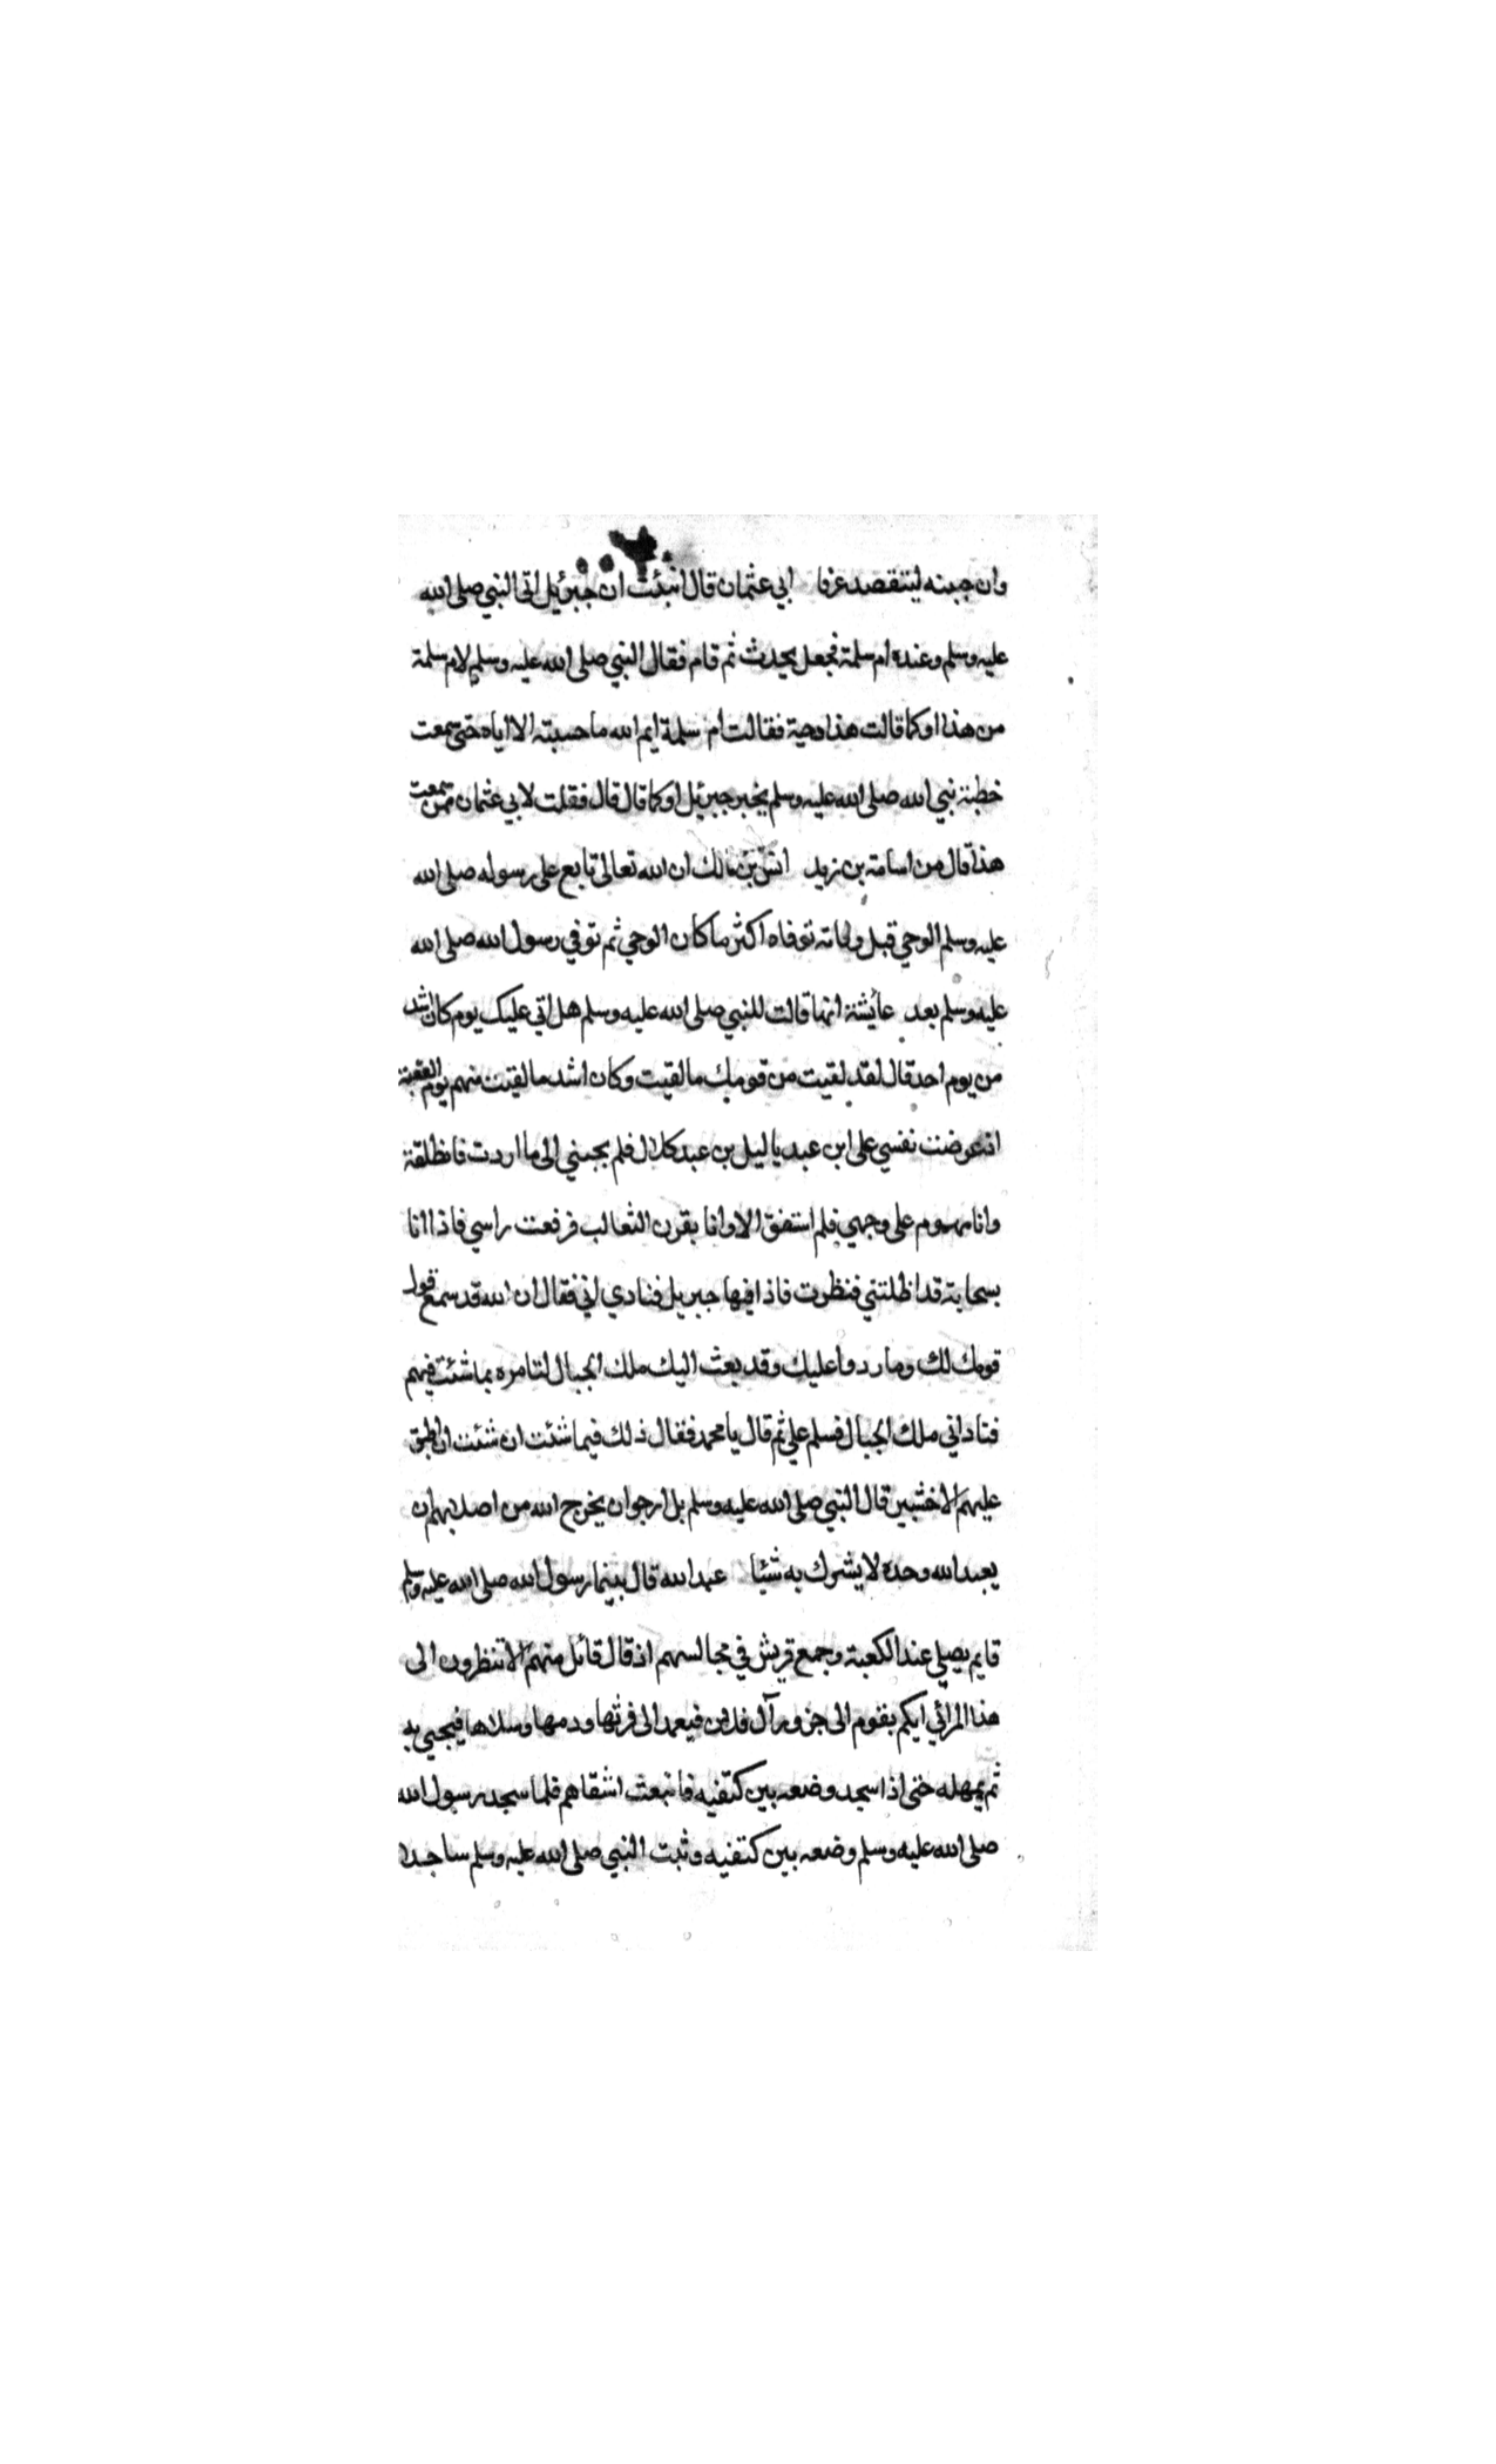 وان جبينه ليتفصد عرقا ابي عثمان قال انبئت ان جبرئيل اتى النبي صلى الله
عليه وسلم وعنده ام سلمة فجعل يحدث ثم قام فقال النبي صلى الله عليه وسلم لام سلمة
من هذا او كما قالت هذا دحية فقالت ام سلمة ايم الله ما حسبته الا اياه حتى سمعت
خطبة نبي الله صلى الله عليه وسلم يخبر جبرئيل او كما قال قال فقلت لابي عثمان ممن سمعت
هذا قال من اسامة بن زيد انس بن مالك ان الله تعالى تابع على رسوله صلى الله
عليه وسلم الوحي قبل وفاته توفاه اكثر ما كان الوحي ثم توفي رسول الله صلى الله
عليه وسلم بعد عائشة انها قالت للنبي صلى الله عليه وسلم هل اتي عليك يوم كان اشد
من يوم احد قال لقد لقيت من قومك ما لقيت وكان اشد ما لقيت منهم يوم العقبة
اذ عرضت نفسي على ابن عبد ياليل بن عبد كلال فلم يجبني الى ما اردت فانطلقت
وانا مهموم على وجهي فلم استفق الا وانا بقرن الثعالب فرفعت راسي فاذا انا
بسحابة قد اظلتني فنظرت فاذا فيها جبريل فنادي لني فقال ان الله قد سمع قول
قومك لك وما ردوا عليك وقد بعث اليك ملك الجبال لتامره بما شئت فيهم
فناداني ملك الجبال فسلم علي ثم قال يا محمد فقال ذلك فيما شئت ان شئت ان اطبق
عليهم الاخشبين قال النبي صلى الله عليه وسلم بل ارجو ان يخرج الله من اصلابهم ان
يعبد الله وحده لا يشرك به شئيا عبد الله قال بينما رسول الله صلى الله عليه وسلم
قايم يصلي عند الكعبة وجمع قريش في مجالسهم اذ قال قائل منهم الا تنظرون الى
هذا المرائي ايكم يقوم الى جزور آل فلان فيعمد الى فرثها ودمها وسلاها فيجي به
ثم يمهله حتى اذا سجد وضعه بين كتفيه فانبعث اشقاهم فلما سجد رسول الله
صلى الله عليه وسلم وضعه بين كتفيه وثبت النبي صلى الله عليه وسلم ساجدا